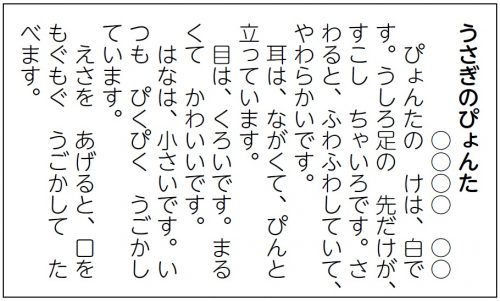 うさぎのぴょんた
○○○○　○○
　ぴょんたの　けは、白で
す。うしろ足の　先だけが、
すこし　ちゃいろです。さ
わると、ふわふわしていて、
やわらかいです。
　耳は、ながくて、ぴんと
立っています。
　目は、くろいです。まる
くて　かわいいです。
　はなは、小さいです。い
つも　ぴくぴく　うごかし
ています。
　えさを　あげると、口を
もぐもぐ　うごかして　た
べます。